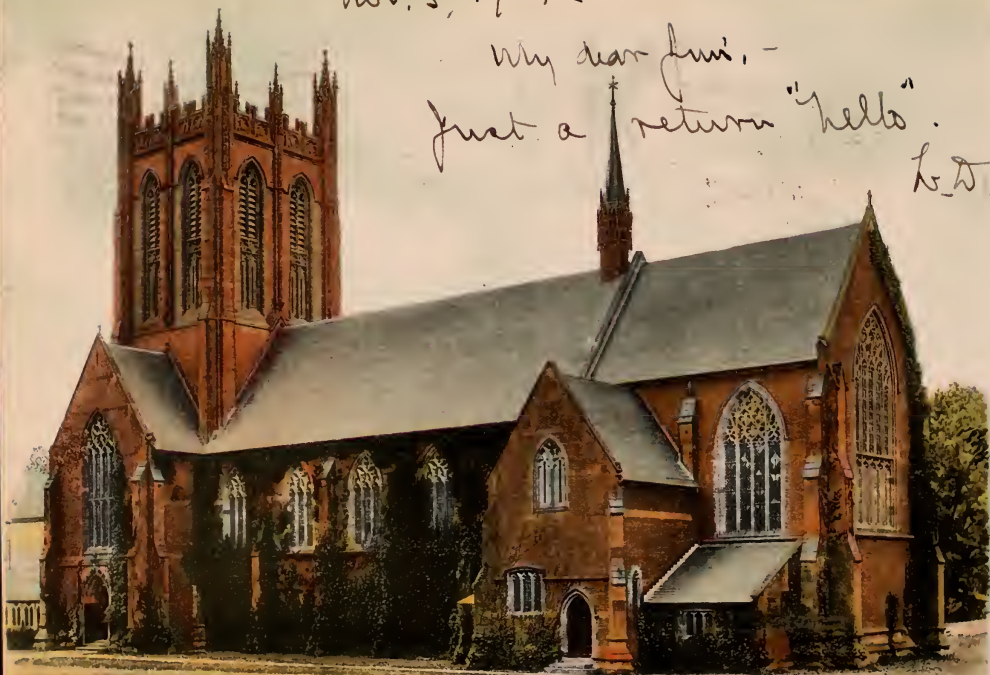 Nov. 3, 19
My dear Jim, -
Just a return "hello".
L.D.